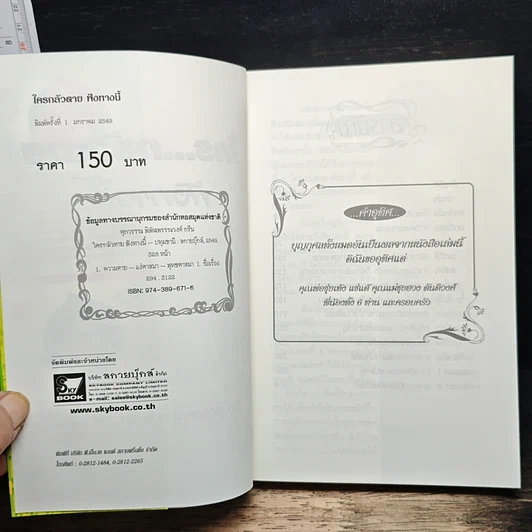 ใครกลัวตาย ฟังทางนี้
พิมพ์ครั้งที่ 1 มกราคม 2549
ราคา 150 บาท
ข้อมูลทางบรรณานุกรมของสำนักหอสมุดแห่งชาติ
ใครกลัวตาย ฟังทางนี้ -- ปทุมธานี : สกายบุ๊กส์, 2549.
328 หน้า
1. ความตาย -- แง่ศาสนา -- พุทธศาสนา I. ชื่อเรื่อง
294.3122
ISBN: 974-389-671-6
จัดพิมพ์และจำหน่ายโดย
SKY BOOK
บริษัท สกายบุ๊กส์ จำกัด
SKYBOOK COMPANY LIMITED
e-mail: sales@skybook.co.th
www.skybook.co.th
โทรศัพท์ : 0-2812-1484, 0-2812-2265
คำอุทิศ...
บุญกุศลทั้งมวลอันเป็นผลจากหนังสือเล่มนี้
ดิฉันขออุทิศแด่
พี่น้องทั้ง 6 ท่าน และครอบครัว